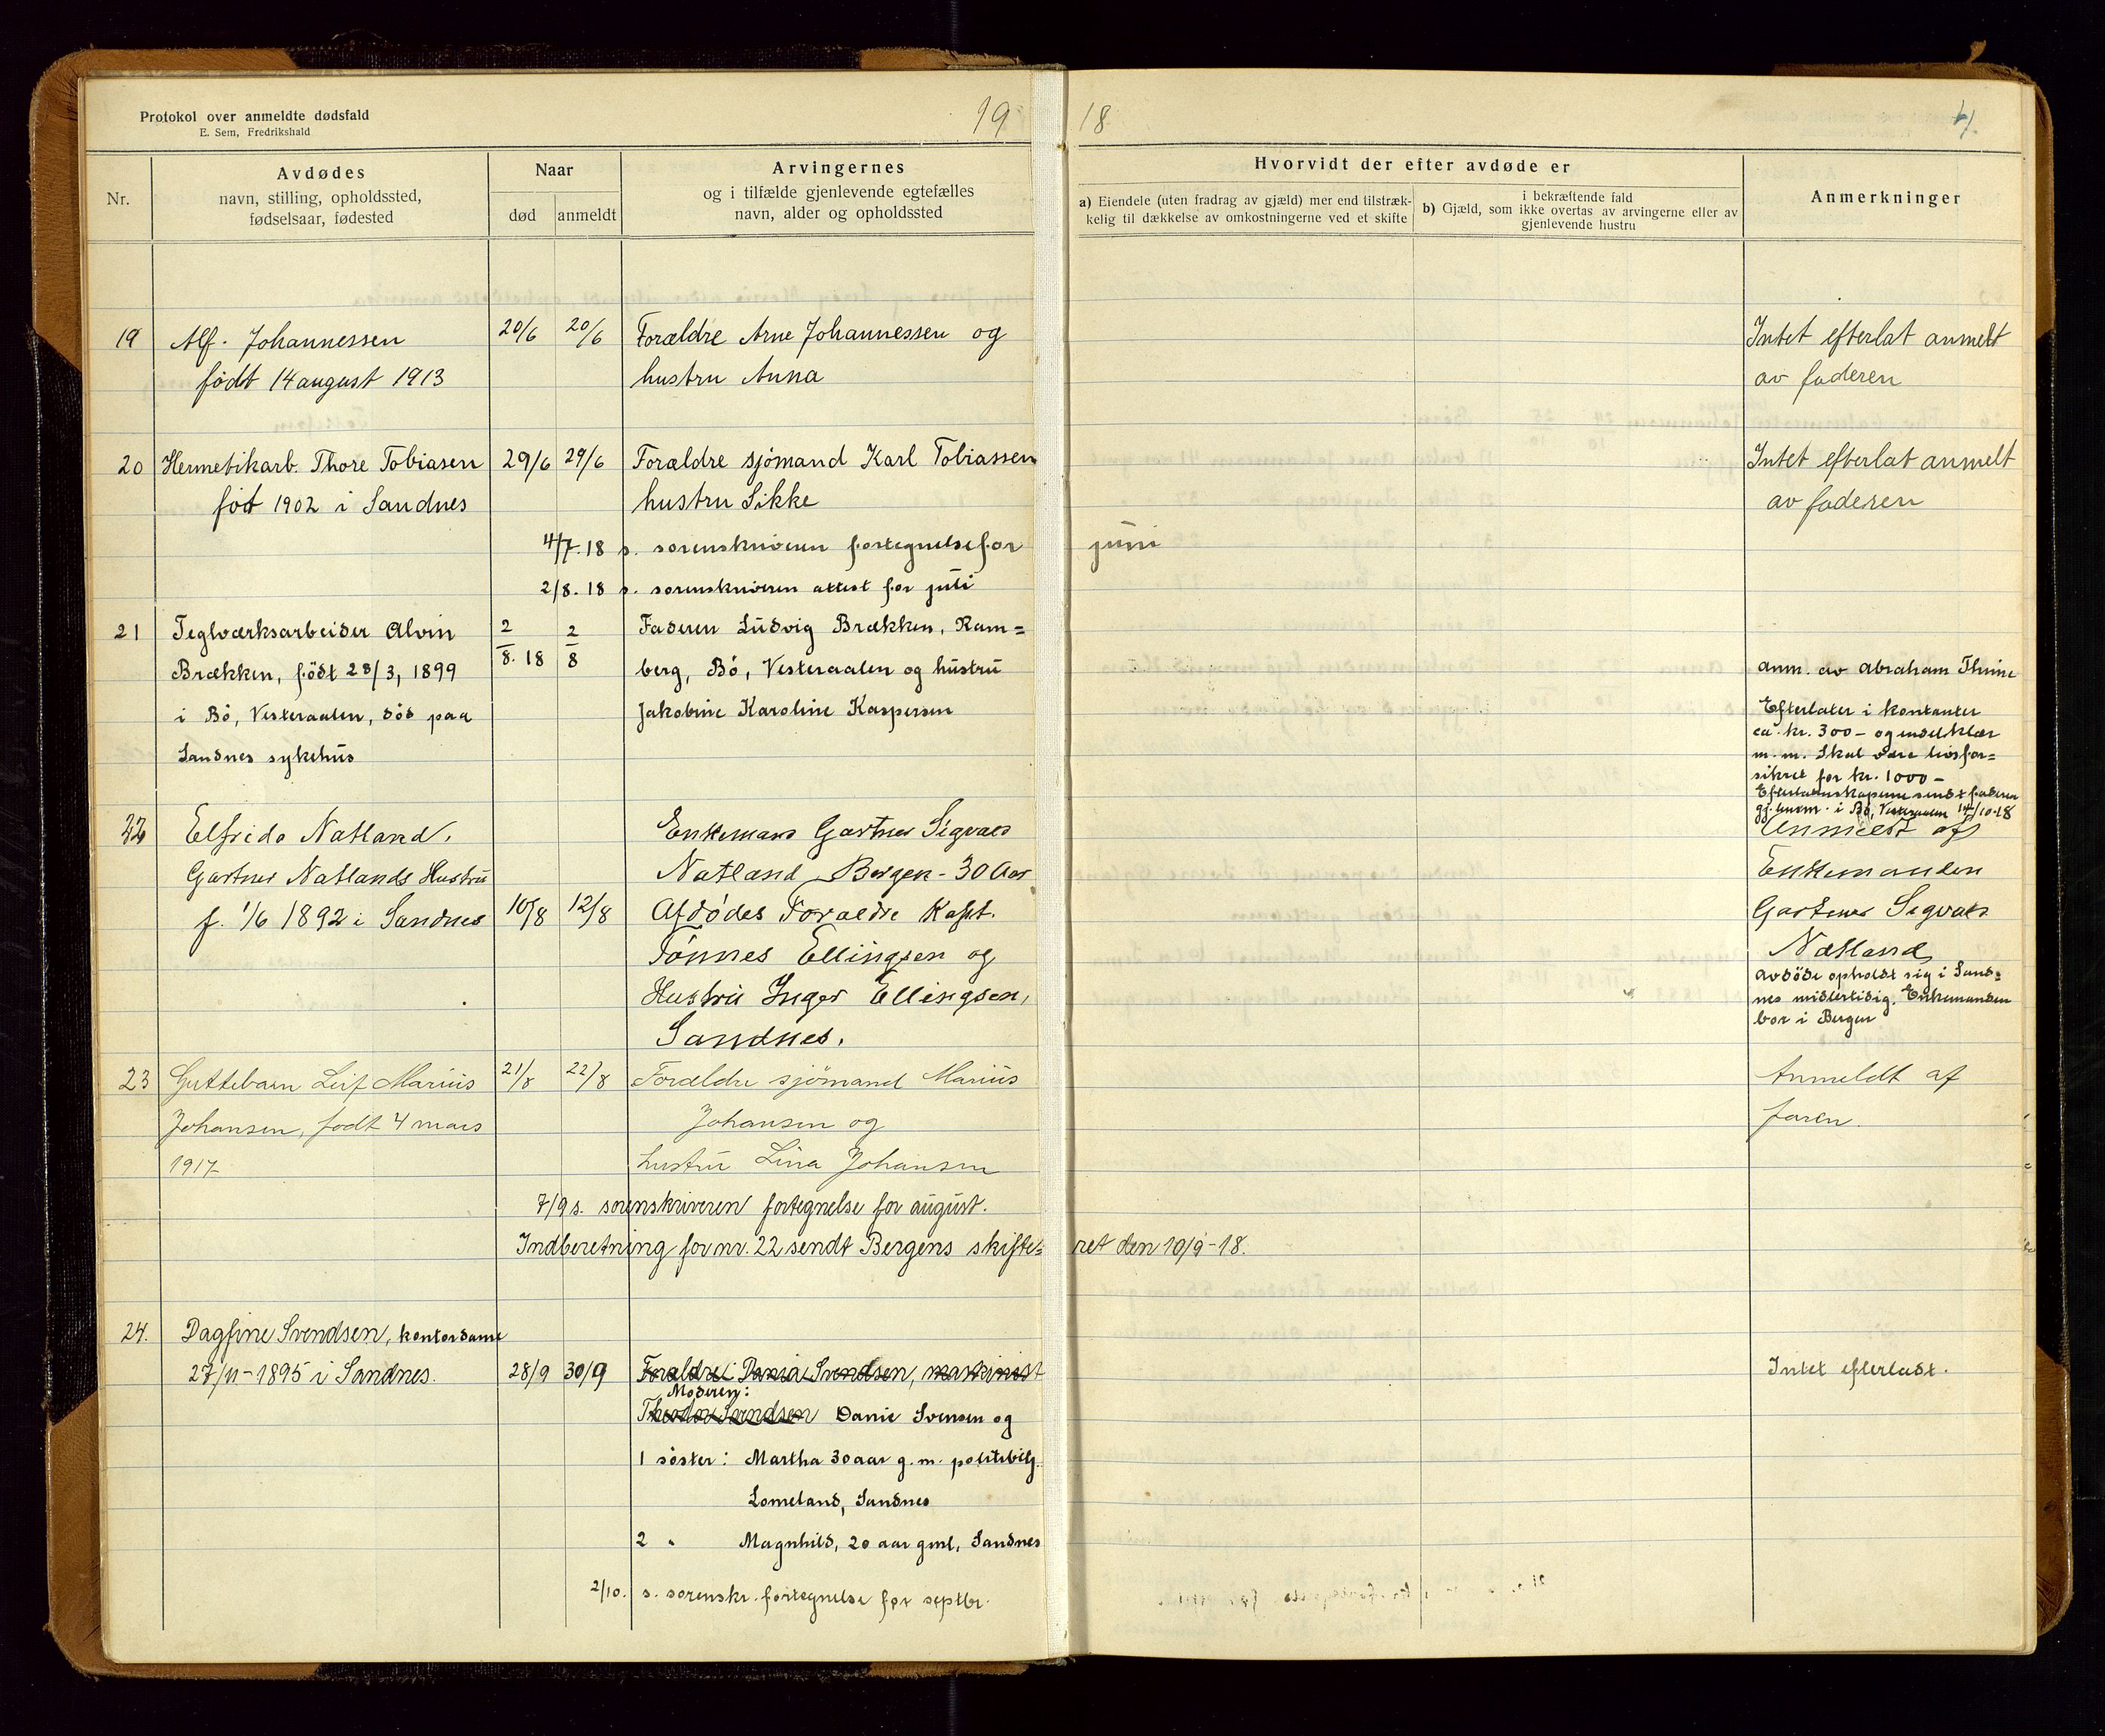 Protokol over anmeldte dødsfald
E. Sem, Fredrikshald
19
18
4.
Nr.
Avdødes
navn, stilling, opholdssted,
fødselsaar, fødested
Naar
død
anmeldt
Arvingernes
og i tilfælde gjenlevende egtefælles
navn, alder og opholdssted
Hvorvidt der efter avdøde er
a) Eiendele (uten fradrag av gjæld) mer end tilstræk-
kelig til dækkelse av omkostningerne ved et skifte
i bekræftende fald
b) Gjæld, som ikke overtas av arvingerne eller av
gjenlevende hustru
Anmerkninger
19 Alf. Johannessen 20/6 20/6 Forældre Arne Johannessen og Intet efterlat anmelt
født 14 august 1913 hustru Anna av faderen
20 Hermetikarb. Thore Tobiasen 29/6 29/6 Forældre sjömand Karl Tobiassen Intet efterlat anmelt
föd 1902 i Sandnes hustru Sikke av faderen
4/7.18 s. sorenskriveren fortegnelse for juni
2/8.18 s. sorenskriveren attest for juli
21 Teglværksarbeider Alvin 2/8.18 2/8 Faderen Ludvig Brækken, Ram=
Brækken, født 28/3, 1899 berg, Bö, Vesteraalen og hustru
i Bö, Vesteraalen, död paa Jakobine Karoline Kaspersen
Sandnes sykehus
anm. av Abraham Thime
Efterlater i kontanter
ca. kr. 300 – og endel klær
m.m. Skal være livsfor=
sikret for kr. 1000 –
Efterladenskaperne sendt faderen
gj. lensm. i Bö, Vesteraalen 14/10-18
22 Elfrida Natland. Enkemand Gartner Sigvald Anmeldt af
Gartner Natlands Hustru Natland Bergen - 30 Aar Enkemanden
f. 1/6 1892 i Sandnes 10/8 12/8 Afdødes Foraldre Kapt. Gartner Sigvald
Tönnes Ellingsen og Natland
Hustru Inger Ellingsen,
Sandnes.
avdöde opholdt sig i Sand=
nes midlertidig. Enkemanden
bor i Bergen
23 Guttebarn Leif Marius 21/8 22/8 Forældre sjömand Marius Anmeldt af
Johansen, født 4 mars Johansen og faren.
1917 hustru Lina Johansen
7/9 s. sorenskriveren fortegnelse for august.
Indberetning for nr. 22 sendt Bergens skifte= ret den 10/9-18.
24. Dagfine Svendsen, kontordame
27/11-1895 i Sandnes. 28/9 30/9 Forældre: Dania Svendsen, maskinist Intet efterladt.
Moderen:
Theodor Svendsen Danie Svensen og
1 söster: Martha 30 aar g.m. politibetj.
Lomeland, Sandnes
2 " Magnhild, 20 aar gml, Sandnes
2/10. s. sorenskr. fortegnelse for septbr.